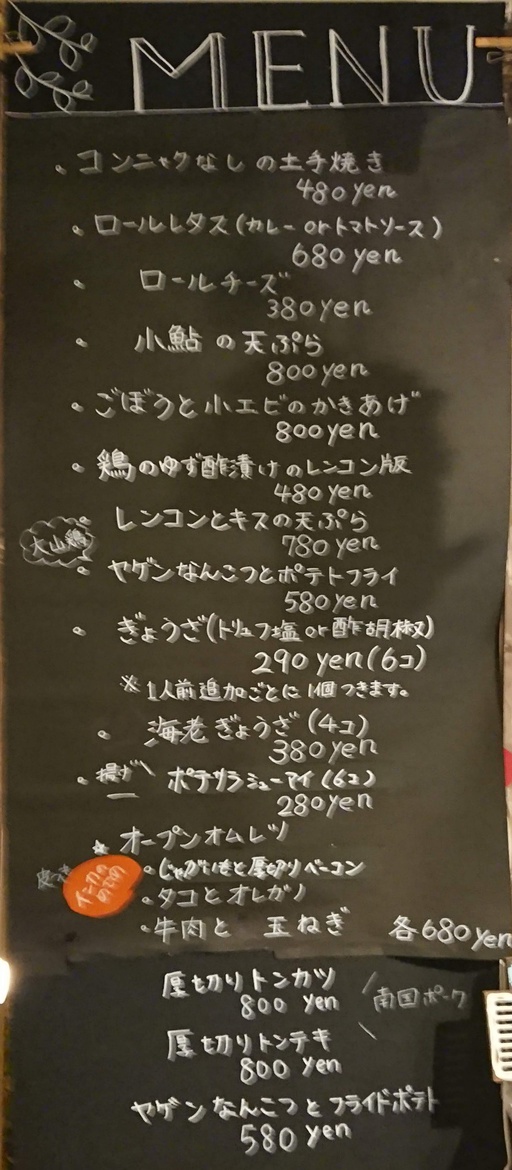 MENU
・コンニャクなしの土手焼き
480yen
・ロールレタス(カレーorトマトソース)
680yen
・ロールチーズ
380yen
・小鮎の天ぷら
800yen
・ごぼうと小エビのかきあげ
800yen
・鶏のゆず酢漬けのレンコン版
480yen
・レンコンとキスの天ぷら
780yen
大山鶏
・ヤゲンなんこつとポテトフライ
580yen
・ぎょうざ(トリュフ塩or酢胡椒)
290yen(6コ)
※1人前追加ごとに1個つきます。
・海老ぎょうざ(4コ)
380yen
・揚げ ポテサラシューマイ(6コ)
280yen
☆オープンオムレツ
インカのめざめ
・じゃがいもと厚切りベーコン
・タコとオレガノ
・牛肉と 玉ねぎ 各680yen
厚切りトンカツ
800 yen
南国ポーク
厚切りトンテキ
800 yen
ヤゲンなんこつとフライドポテト
580 yen